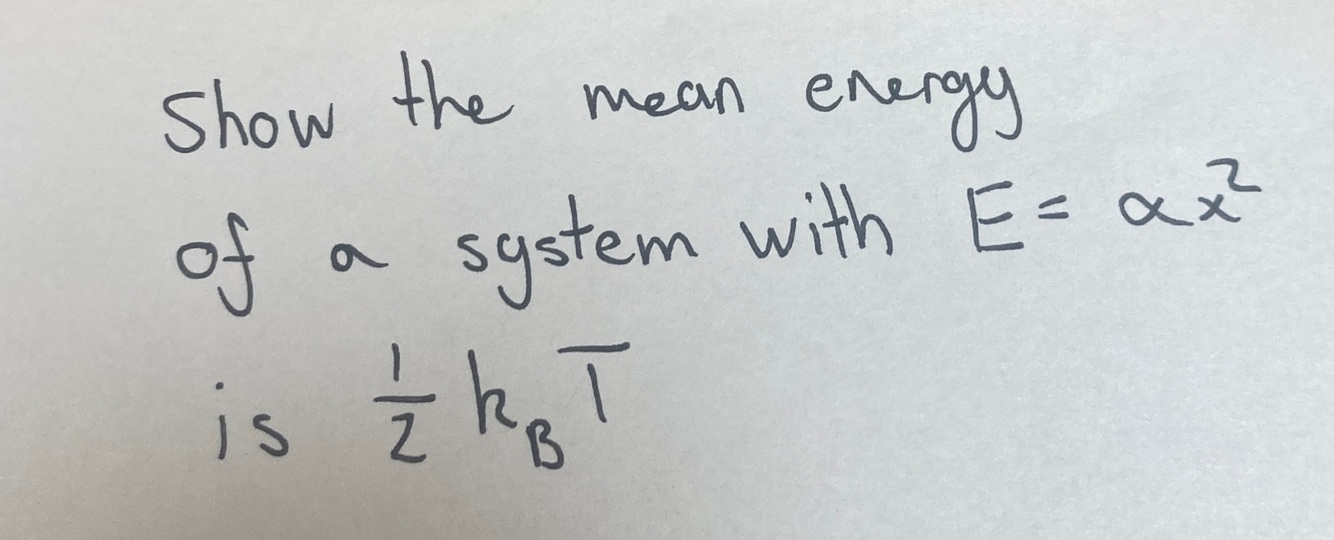 Show the mean energy
of a system with E = αx²
is ½ k_B T